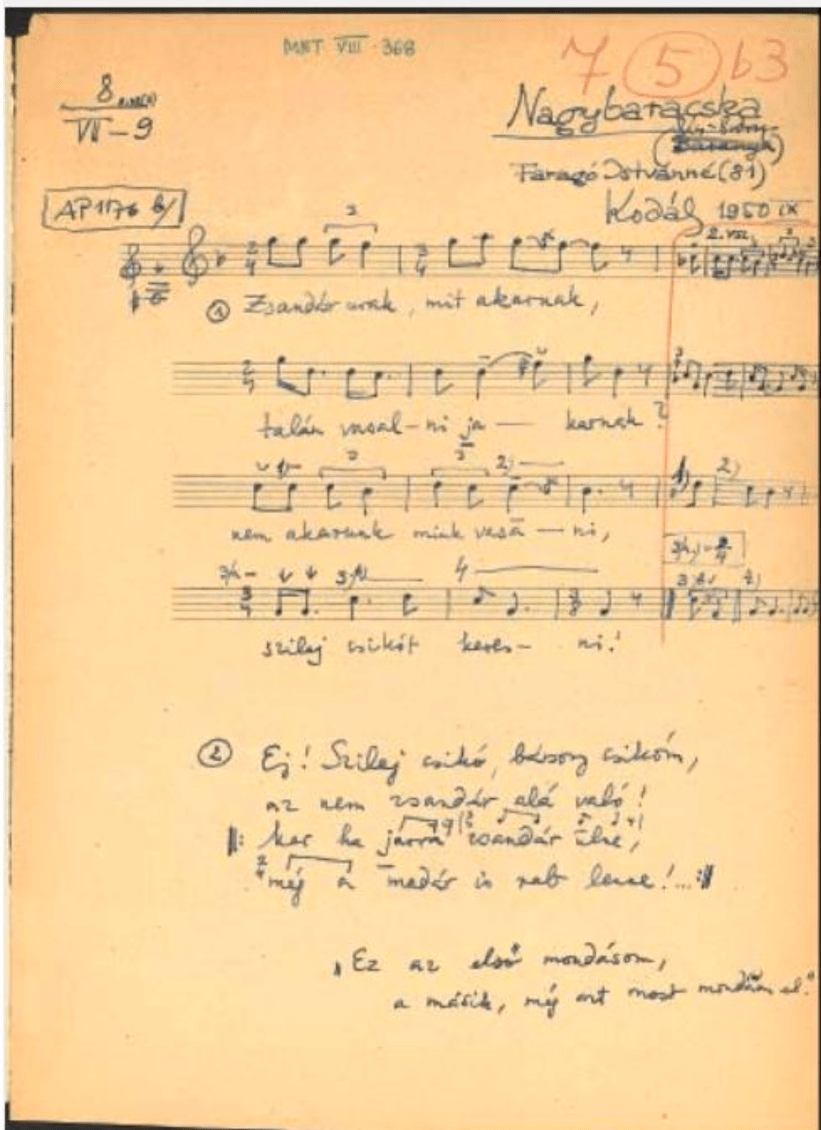 MNT VIII 368
7 5 b3
8
VII-9
Nagybaracska
Baranya
Faragó Istvánné (81)
AP 1176 b/
Kodály 1950 IX
2. vsz.
① Zsandár urak, mit akarnak,
talán vasal-ni ja — karnak?
nem akarunk mink vasā — ni,
szilaj csikót keres- ni!
② Ej! Szilaj csikó, bársony csikóm,
az nem zsandár alá való!
Kar ha járrá zsandár ülne,
még a madár is rab lenne!...
„Ez az első mondásom,
a másik, még azt most mondom el."